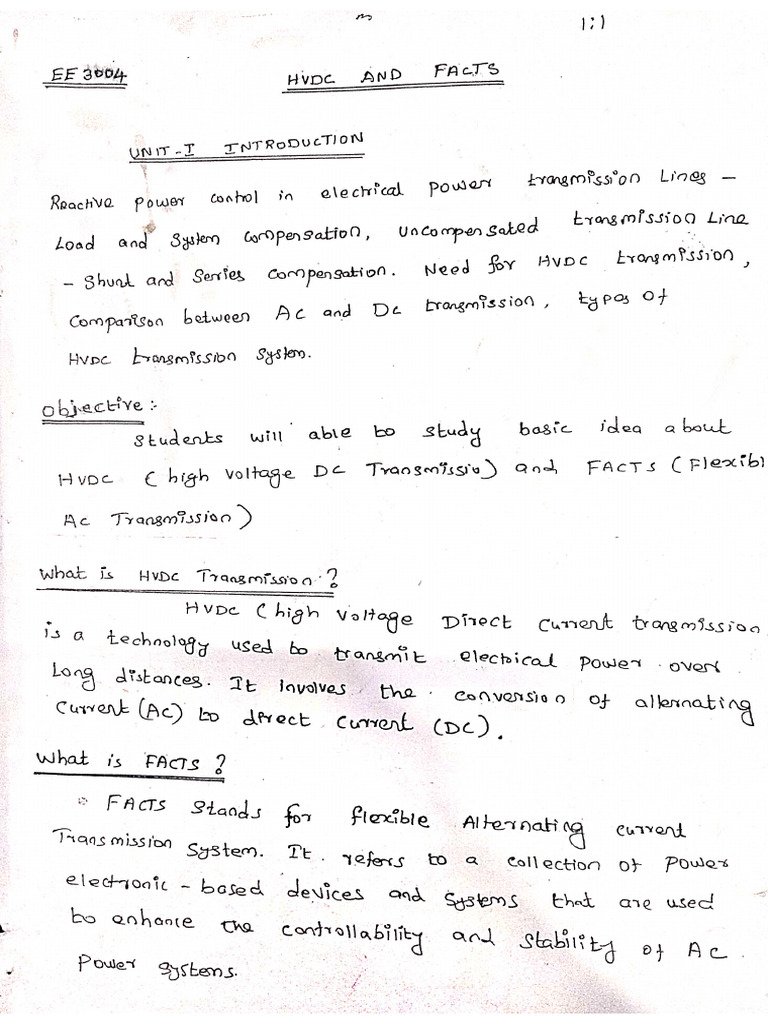 1:1
EE 3004 HVDC AND FACTS
UNIT-I INTRODUCTION
Reactive power control in electrical power transmission Lines -
Load and System Compensation, Uncompensated transmission Line
- Shunt and Series Compensation. Need for HVDC transmission,
Comparison between AC and DC transmission, types of
HVDC transmission System.
Objective:-
Students will able to study basic idea about
HVDC (high voltage DC Transmissio) and FACTS (Flexibl
Ac Transmission)
What is HVDC Transmission?
HVDC (high Voltage Direct Current transmission
is a technology used to transmit electrical power over
Long distances. It involves the conversion of alternating
Current (AC) to direct Current (DC).
What is FACTS?
FACTS Stands for flexible Alternating current
Transmission System. It refers to a collection of Power
electronic-based devices and Systems that are used
to enhance the controllability and stability of AC
Power Systems.